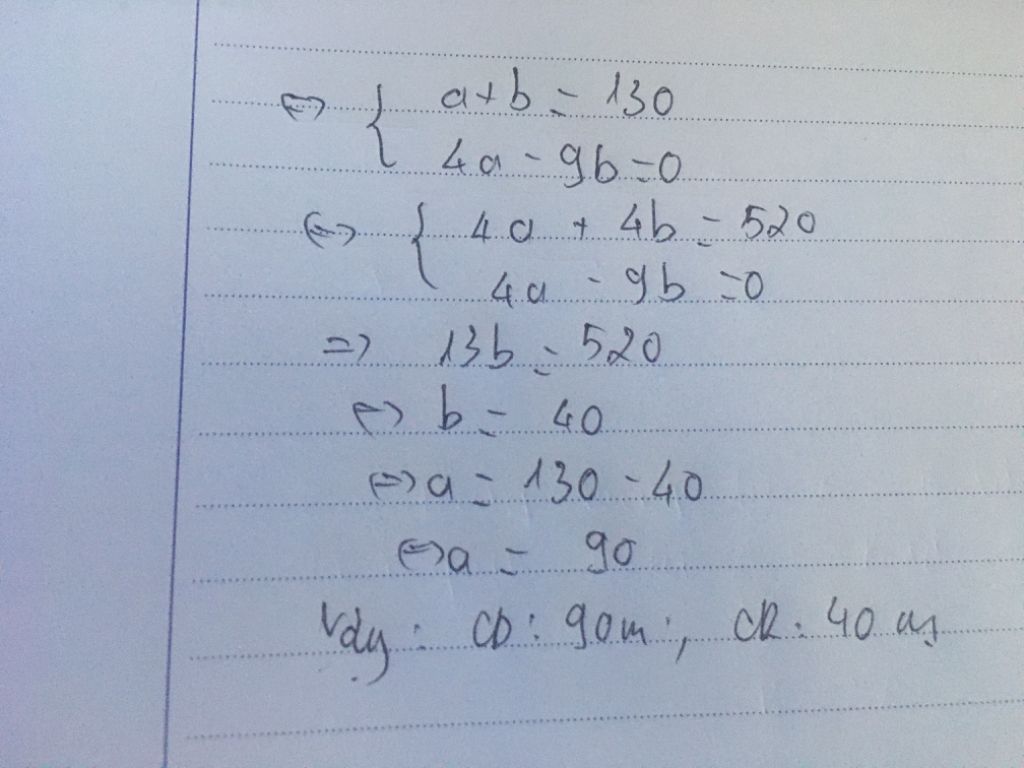 ⇔ { a+b = 130
4a - 9b = 0
⇔ { 4a + 4b = 520
4a - 9b = 0
=> 13b = 520
⇔ b = 40
⇔ a = 130 - 40
⇔ a = 90
Vậy : CD : 90m ; CR : 40 m